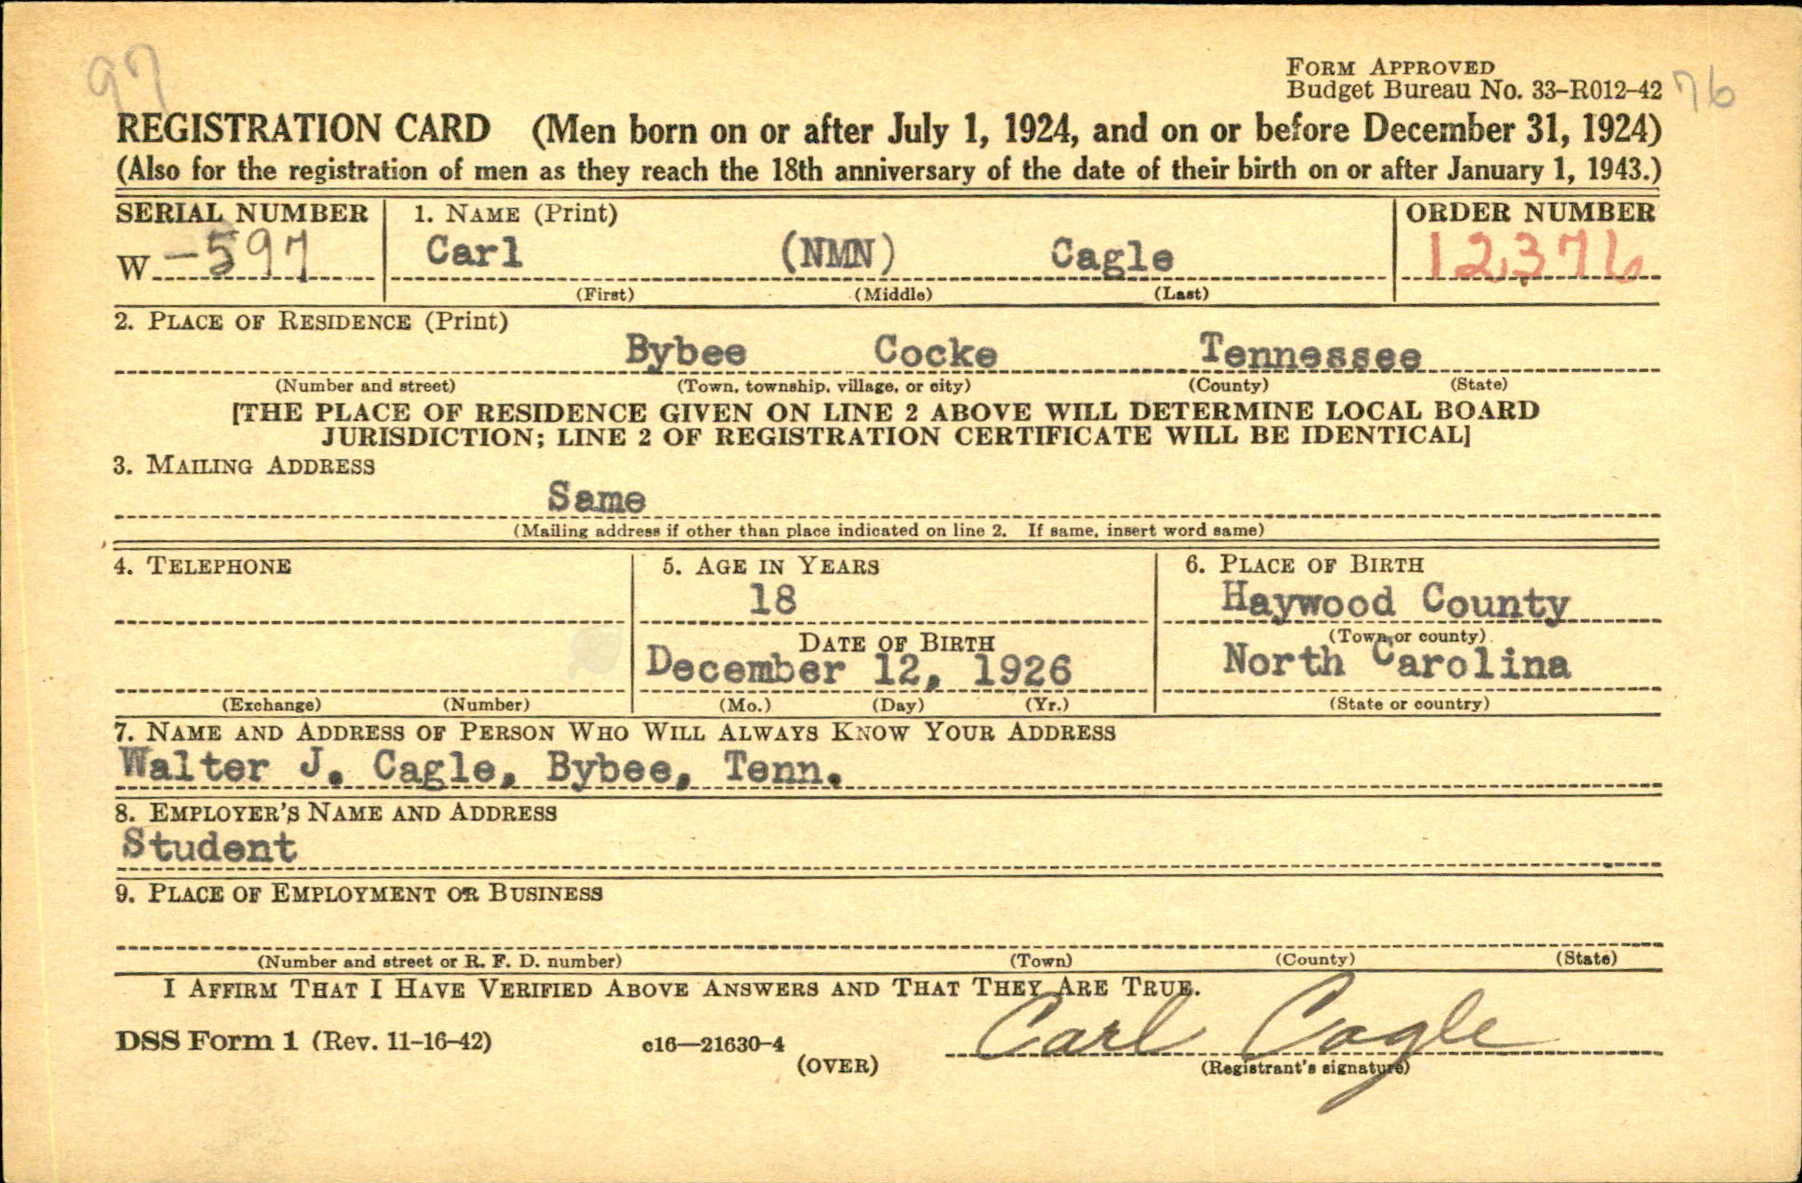 97
FORM APPROVED
Budget Bureau No. 33-R012-42 76
REGISTRATION CARD (Men born on or after July 1, 1924, and on or before December 31, 1924)
(Also for the registration of men as they reach the 18th anniversary of the date of their birth on or after January 1, 1943.)
SERIAL NUMBER 1. NAME (Print) ORDER NUMBER
W -597 Carl (NMN) Cagle 12,376
(First) (Middle) (Last)
2. PLACE OF RESIDENCE (Print)
Bybee Cocke Tennessee
(Number and street) (Town, township, village, or city) (County) (State)
[THE PLACE OF RESIDENCE GIVEN ON LINE 2 ABOVE WILL DETERMINE LOCAL BOARD
JURISDICTION; LINE 2 OF REGISTRATION CERTIFICATE WILL BE IDENTICAL]
3. MAILING ADDRESS
Same
(Mailing address if other than place indicated on line 2. If same, insert word same)
4. TELEPHONE 5. AGE IN YEARS 6. PLACE OF BIRTH
18 Haywood County
DATE OF BIRTH (Town or county)
December 12, 1926 North Carolina
(Exchange) (Number) (Mo.) (Day) (Yr.) (State or country)
7. NAME AND ADDRESS OF PERSON WHO WILL ALWAYS KNOW YOUR ADDRESS
Walter J. Cagle, Bybee, Tenn.
8. EMPLOYER'S NAME AND ADDRESS
Student
9. PLACE OF EMPLOYMENT OR BUSINESS
(Number and street or R. F. D. number) (Town) (County) (State)
I AFFIRM THAT I HAVE VERIFIED ABOVE ANSWERS AND THAT THEY ARE TRUE.
DSS Form 1 (Rev. 11-16-42) c16—21630-4 Carl Cagle
(OVER) (Registrant's signature)